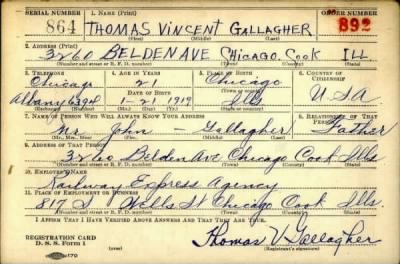 SERIAL NUMBER 1. NAME (Print) ORDER NUMBER
864 THOMAS VINCENT GALLAGHER 892
(First) (Middle) (Last)
2. ADDRESS (Print)
3260 BELDEN AVE CHICAGO, COOK ILL
(Number and street or R. F. D. number) (Town) (County) (State)
3. TELEPHONE 4. AGE IN YEARS 5. PLACE OF BIRTH 6. COUNTRY OF CITIZENSHIP
Chicago 21 Chicago
DATE OF BIRTH (Town or county)
Albany 6394 1-21 1919 Ills USA
(Exchange) (No.) (Mo.) (Day) (Yr.) (State or country)
7. NAME OF PERSON WHO WILL ALWAYS KNOW YOUR ADDRESS 8. RELATIONSHIP OF THAT PERSON
Mr. John - Gallagher Father
(Mr., Mrs., Miss) (First) (Middle) (Last)
9. ADDRESS OF THAT PERSON
3260 Belden Ave Chicago Cook Ills
(Number and street or R. F. D. number) (Town) (County) (State)
10. EMPLOYER'S NAME
Railway Express Agency
11. PLACE OF EMPLOYMENT OR BUSINESS
817 S Wells St Chicago Cook Ills.
(Number and street or R. F. D. number) (Town) (County) (State)
I AFFIRM THAT I HAVE VERIFIED ABOVE ANSWERS AND THAT THEY ARE TRUE.
REGISTRATION CARD
D. S. S. Form 1 (over) Thomas V. Gallagher
(Registrant's signature)